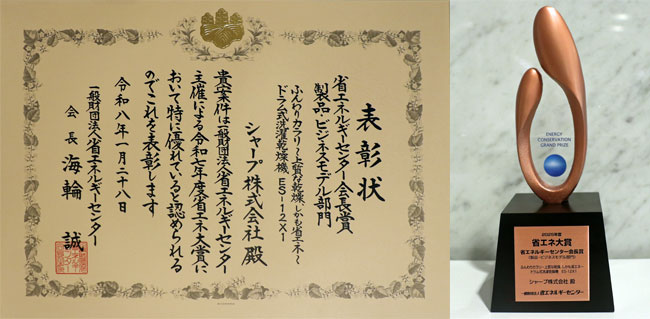 表彰状
省エネルギーセンター会長賞
製品・ビジネスモデル部門
ふんわりカラリッ上質な乾燥、しかも省エネ〜
ドラム式洗濯乾燥機 ES-12X1
シャープ株式会社 殿
貴案件は一般財団法人省エネルギーセンター
主催による令和七年度省エネ大賞に
おいて特に優れていると認められる
のでこれを表彰します
令和八年一月二十八日
一般財団法人省エネルギーセンター
会長 海輪 誠
ENERGY
CONSERVATION
GRAND PRIZE
2025年度
省エネ大賞
省エネルギーセンター会長賞
(製品・ビジネスモデル部門)
ドラム式洗濯乾燥機 ES-12X1
シャープ株式会社 殿
一般財団法人 省エネルギーセンター